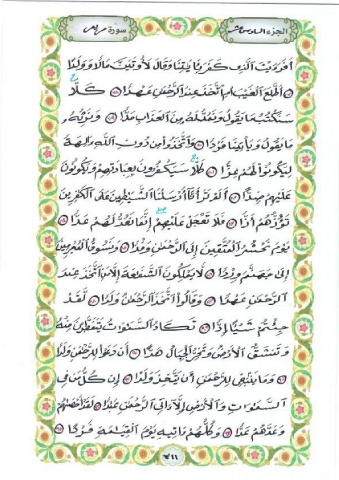 الجزء السادس عشر سورة مريم
أفرءيت الذى كفر بـٔايتنا وقال لأوتين مالا وولدا
أطلع الغيب أم اتخذ عند الرحمن عهدا كلا
سنكتب ما يقول ونمد له من العذاب مدا ونرثه
ما يقول ويأتينا فردا واتخذوا من دون الله ءالهة
ليكونوا لهم عزا كلا سيكفرون بعبادتهم ويكونون
عليهم ضدا ألم تر أنا أرسلنا الشيطين على الكفرين
تؤزهم أزا فلا تعجل عليهم إنما نعد لهم عدا
يوم نحشر المتقين إلى الرحمن وفدا ونسوق المجرمين
إلى جهنم وردا لا يملكون الشفعة إلا من اتخذ عند
الرحمن عهدا وقالوا اتخذ الرحمن ولدا لقد
جئتم شيـٔا إدا تكاد السموت يتفطرن منه
وتنشق الأرض وتخر الجبال هدا أن دعوا للرحمن ولدا
وما ينبغى للرحمن أن يتخذ ولدا إن كل من فى
السموت والأرض إلا ءاتى الرحمن عبدا لقد أحصهم
وعدهم عدا وكلهم ءاتيه يوم القيمة فردا
٣١١